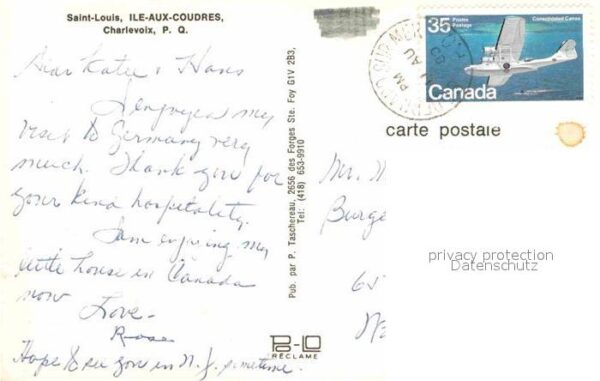 Saint-Louis, ILE-AUX-COUDRES,
Charlevoix, P. Q.
Dear Katie & Hans
I enjoyed my
visit to Germany very
much. Thank you for
your kind hospitality.
I am enjoying my
little house in Canada
now
Love-
Rose
Hope to see you in N. J. sometime.
Pub. par P. Taschereau, 2656 des Forges Ste. Foy G1V 2B3,
Tel: (418) 653-9910
RÉCLAME
35
Postes
Postage
Consolidated Canso
Canada
PM
AU
carte postale
Mr.
Burge
65
privacy protection
Datenschutz